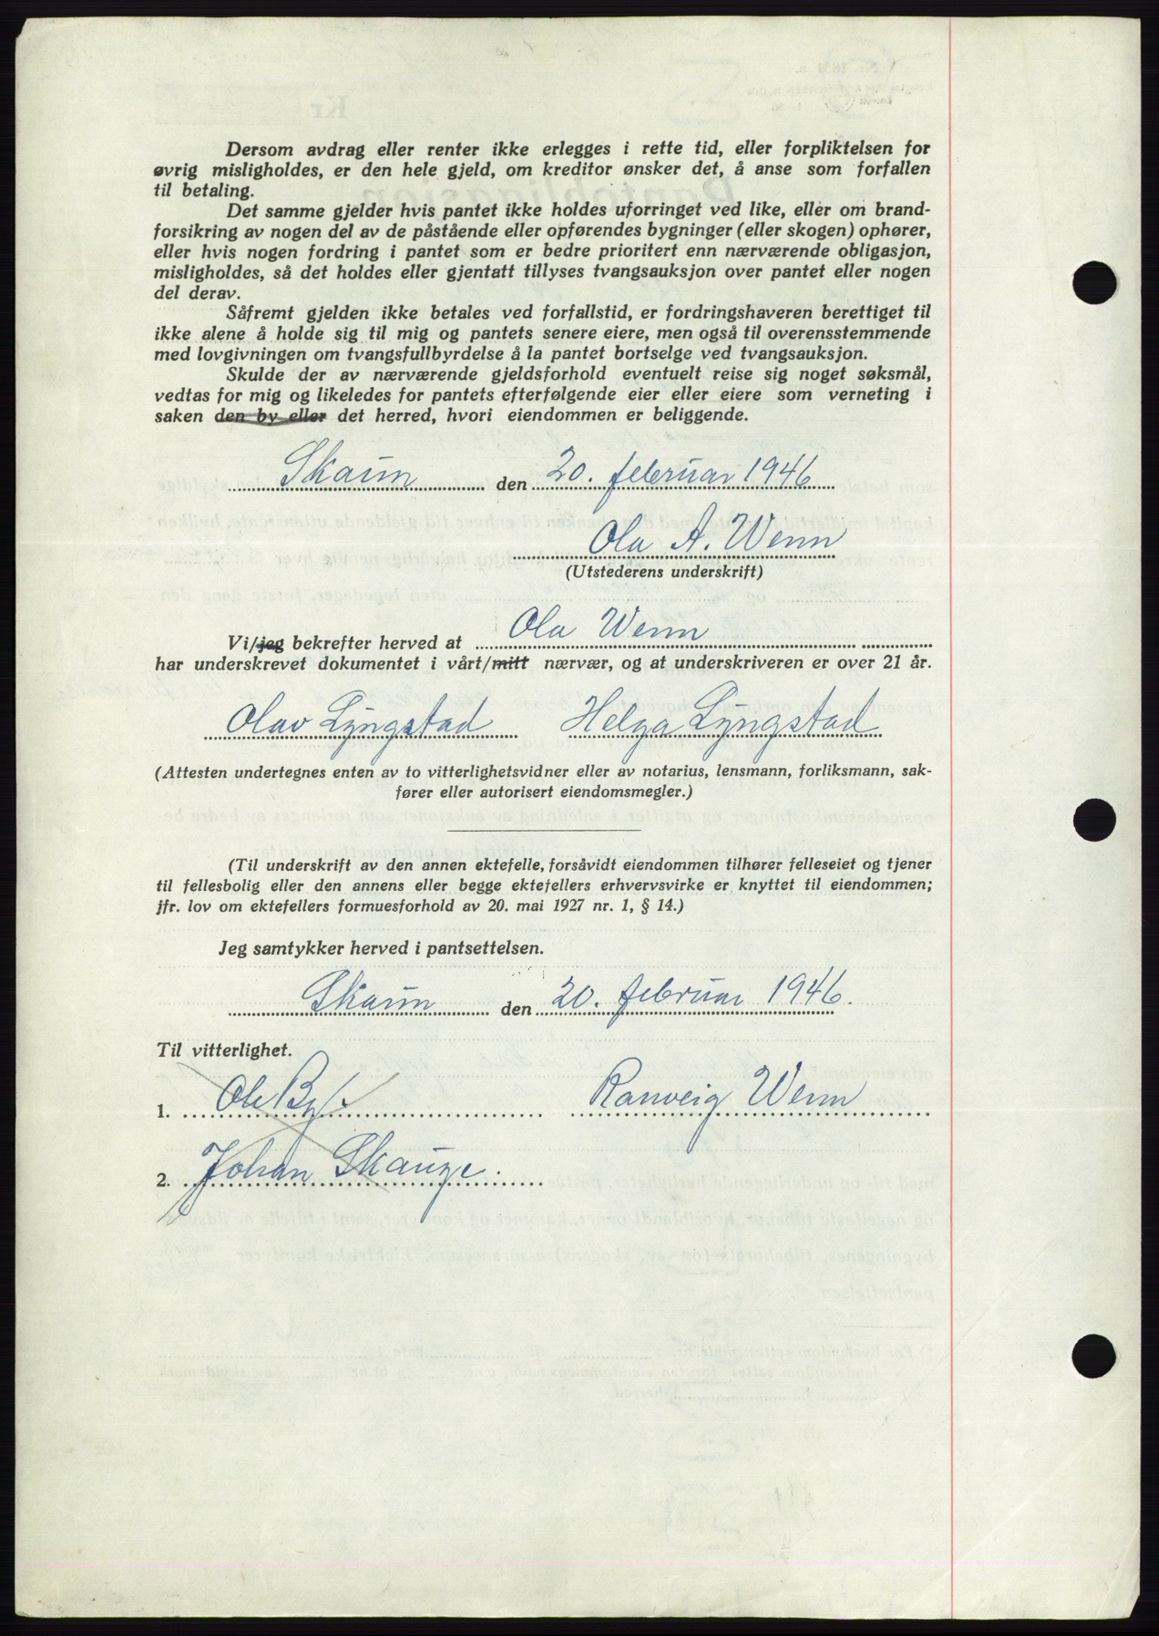 Dersom avdrag eller renter ikke erlegges i rette tid, eller forpliktelsen for
øvrig misligholdes, er den hele gjeld, om kreditor ønsker det, å anse som forfallen
til betaling.
Det samme gjelder hvis pantet ikke holdes uforringet ved like, eller om brand-
forsikring av nogen del av de påstående eller opførendes bygninger (eller skogen) ophører,
eller hvis nogen fordring i pantet som er bedre prioritert enn nærværende obligasjon,
misligholdes, så det holdes eller gjentatt tillyses tvangsauksjon over pantet eller nogen
del derav.
Såfremt gjelden ikke betales ved forfallstid, er fordringshaveren berettiget til
ikke alene å holde sig til mig og pantets senere eiere, men også til overensstemmende
med lovgivningen om tvangsfullbyrdelse å la pantet bortselge ved tvangsauksjon.
Skulde der av nærværende gjeldsforhold eventuelt reise sig noget søksmål,
vedtas for mig og likeledes for pantets efterfølgende eier eller eiere som verneting i
saken den by eller det herred, hvori eiendommen er beliggende.
Skaun den 20. februar 1946
Ola A. Wenn
(Utstederens underskrift)
Vi/jeg bekrefter herved at Ola Wenn
har underskrevet dokumentet i vårt/mitt nærvær, og at underskriveren er over 21 år.
Olav Lyngstad Helga Lyngstad
(Attesten undertegnes enten av to vitterlighetsvidner eller av notarius, lensmann, forliksmann, sak-
fører eller autorisert eiendomsmegler.)
(Til underskrift av den annen ektefelle, forsåvidt eiendommen tilhører felleseiet og tjener
til fellesbolig eller den annens eller begge ektefellers erhvervsvirke er knyttet til eiendommen;
jfr. lov om ektefellers formuesforhold av 20. mai 1927 nr. 1, § 14.)
Jeg samtykker herved i pantsettelsen.
Skaun den 20. februar 1946.
Til vitterlighet.
1. Ole By. Ranveig Wenn
2. Johan Skauge.